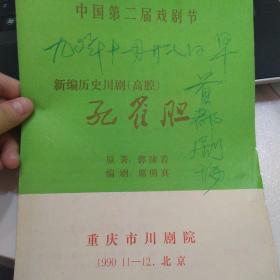 中国第二届戏剧节
九〇年十一月廿九日早
首都剧场
新编历史川剧(高腔)
孔雀胆
原著:郭沫若
编剧:席明真
重庆市川剧院
1990.11—12.北京